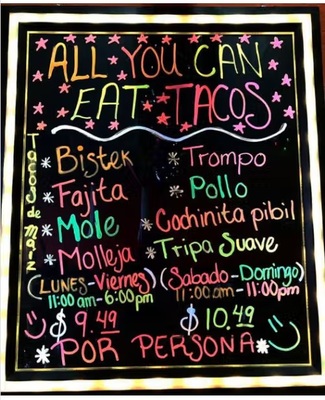 ALL YOU CAN
EAT TACOS
Tacos de Maiz
* Bistek * Trompo
* Fajita * Pollo
* Mole * Cochinita pibil
* Molleja * Tripa Suave
(LUNES-Viernes) (Sabado-Domingo)
11:00am-6:00pm 11:00am-11:00pm
$9.49 $10.49
*POR PERSONA*